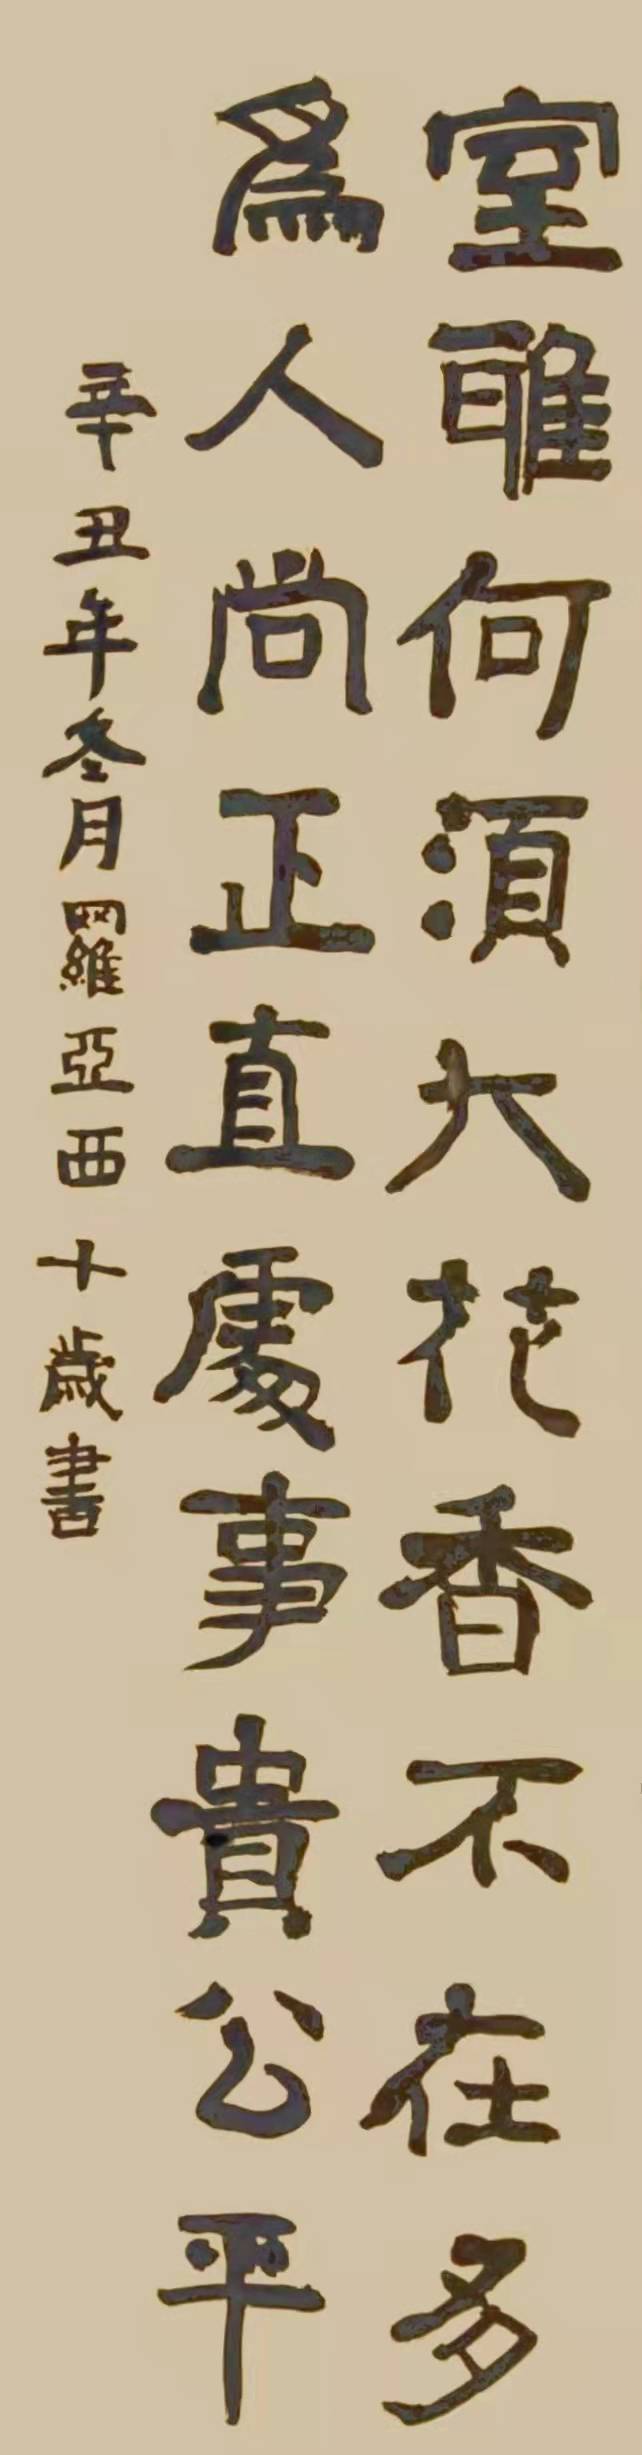 室雅何須大花香不在多
為人尚正直處事貴公平
辛丑年冬月羅亞西十歲書